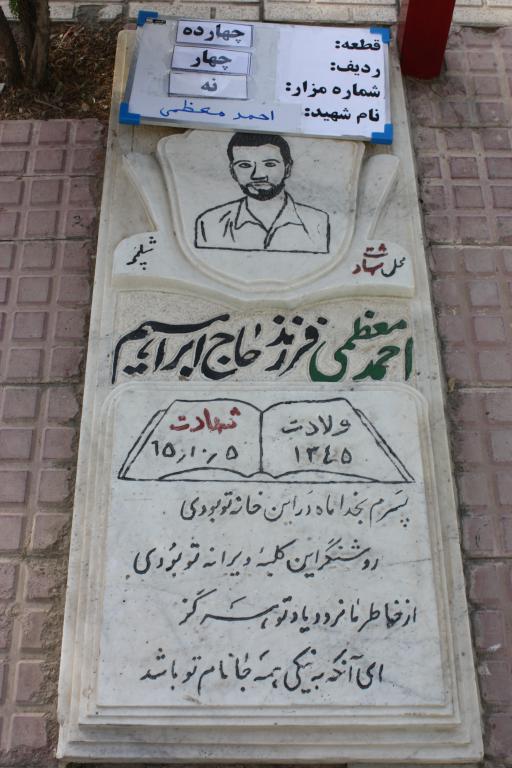 قطعه: چهارده
ردیف: چهار
شماره مزار: نه
نام شهید: احمد معظمی
محل شهادت
شلمچه
احمد معظمی فرزند حاج ابراهیم
ولادت
۱۳۴۵
شهادت
۶۵،۱۰،۵
پسرم بخدا ماه در این خانه تو بودی
روشنگر این کلبهٔ ویرانه تو بودی
از خاطر ما نرود یاد تو هرگز
ای آنکه به نیکی همه جا نام تو باشد